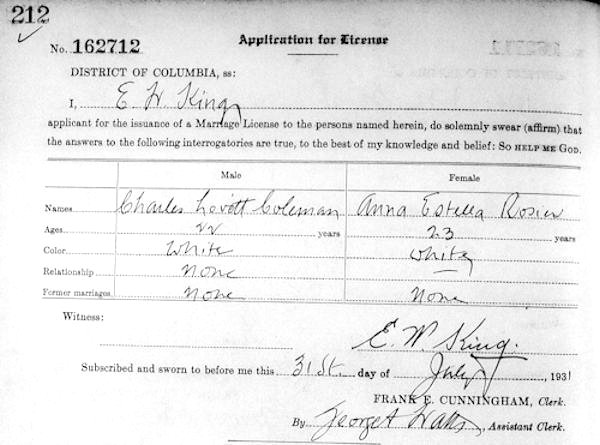 212
No. 162712
Application for License
DISTRICT OF COLUMBIA, ss:
I, E. W. King
applicant for the issuance of a Marriage License to the persons named herein, do solemnly swear (affirm) that
the answers to the following interrogatories are true, to the best of my knowledge and belief: SO HELP ME GOD.
Male Female
Names Charles Lovett Coleman Anna Estella Rosier
Ages 22 years 23 years
Color White White
Relationship None
Former marriages None None
Witness:
E. W. King.
Subscribed and sworn to before me this 31st. day of July, 1931
FRANK E. CUNNINGHAM, Clerk.
By George A Watts, Assistant Clerk.